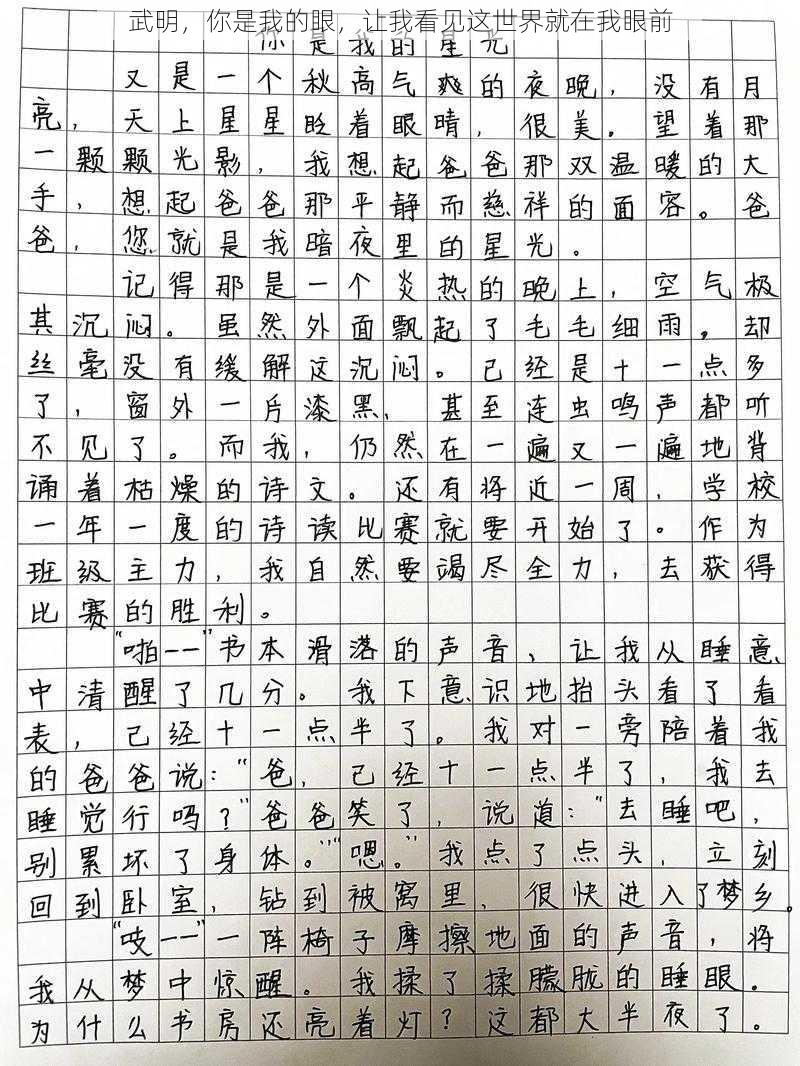 武明，你是我的眼，让我看见这世界就在我眼前
你是我的星光
又是一个秋高气爽的夜晚，没有月
亮，天上星星眨着眼睛，很美。望着那
一颗颗光影，我想起爸爸那双温暖的大
手，想起爸爸那平静而慈祥的面容。爸
爸，您就是我暗夜里的星光。
记得那是一个炎热的晚上，空气极
其沉闷。虽然外面飘起了毛毛细雨，却
丝毫没有缓解这沉闷。已经是十一点多
了，窗外一片漆黑，甚至连虫鸣声都听
不见了。而我，仍然在一遍又一遍地背
诵着枯燥的诗文。还有将近一周，学校
一年一度的诗读比赛就要开始了。作为
班级主力，我自然要竭尽全力，去获得
比赛的胜利。
“啪一一”书本滑落的声音，让我从睡意
中清醒了几分。我下意识地抬头看了看
表，已经十一点半了。我对一旁陪着我
的爸爸说：“爸，已经十一点半了，我去
睡觉行吗？”爸爸笑了，说道：“去睡吧，
别累坏了身体。”“嗯。”我点了点头，立刻
回到卧室，钻到被窝里，很快进入了梦乡。
“吱一一”一阵椅子摩擦地面的声音，将
我从梦中惊醒。我揉了揉朦胧的睡眼．
为什么书房还亮着灯？这都大半夜了。